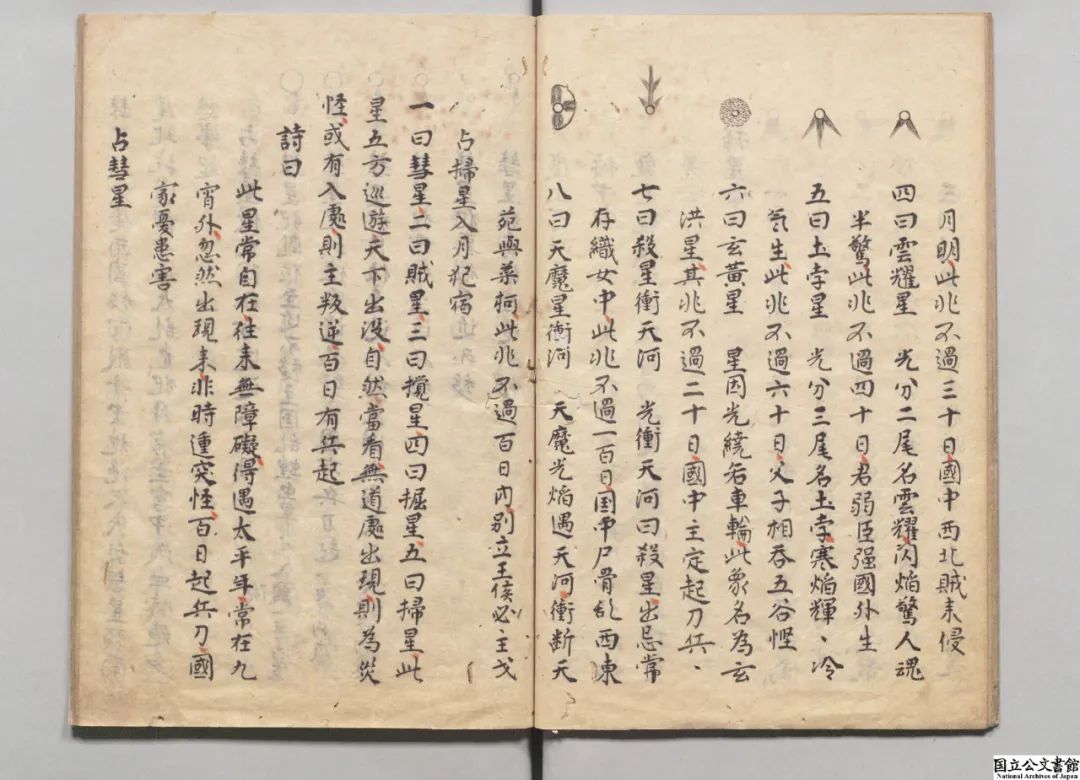 三月明此兆不過三十日國中西北賊来侵
四曰雲耀星 光分二尾名雲耀閃焔驚人魂
半驚此兆不過四十日君弱臣强國外生
五曰土孛星 光分三尾名土孛寒焔輝、冷
氣生此兆不過六十日父子相吞五谷慳
六曰玄黃星 星因光繞若車輪此象名為玄
洪星其兆不過二十日國中主定起刀兵、
七曰殺星衝天河 光衝天河曰殺星出忌常
存織女中此兆不過一百日国中尸骨乱西東
八曰天魔星衝河 天魔光焔遇天河衝断天
苑與菜柯此兆不過百日內別立王侯必主戈
占掃星入月犯宿
一曰彗星二曰賊星三曰攪星四曰掘星五曰掃星此
星五方巡遊天下出沒自然當看無道處出現則為災
怪或有入處則主叛逆百日有兵起
詩曰
此星常自在往来無障礙得遇太平年常在九
霄外忽然出現来非時連突怪百日起兵刀國
家憂患害
占彗星
国立公文書館
National Archives of Japan